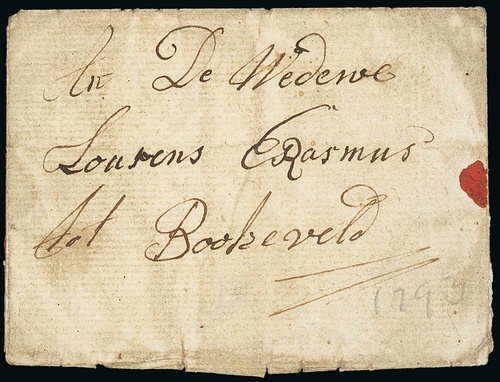 An De Wedewe
Lourens Erasmus
tot Bookeveld
1793